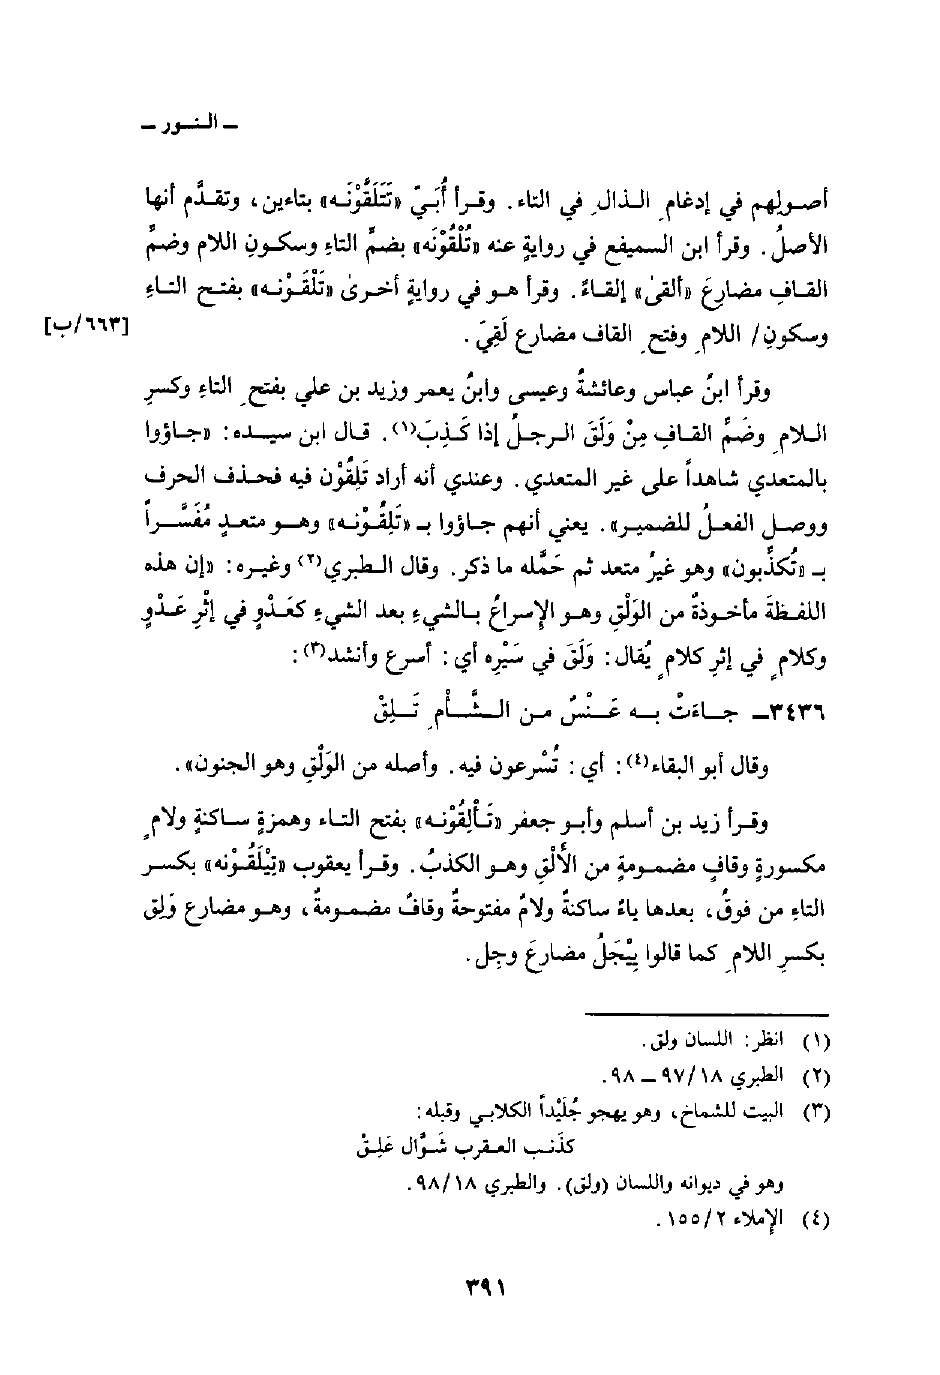 ـ النـور ـ
أصولهم في إدغامِ الذالِ في التاء. وقرأ أُبَيّ «تَتَلَقَّوْنَه» بتاءين، وتقدَّم أنها
الأصلُ. وقرأ ابن السميفع في روايةٍ عنه «تُلْقُوْنَه» بضمِّ التاءِ وسكونِ اللام وضمِّ
القافِ مضارعَ «ألقىٰ» إلقاءً. وقرأ هو في روايةٍ أخرىٰ «تَلْقَوْنه» بفتح التاءِ
وسكونِ/ اللامِ وفتحِ القاف مضارع لَقِيَ. [٦٦٣/ب]
وقرأ ابنُ عباس وعائشةُ وعيسى وابنُ يعمر وزيد بن علي بفتحِ التاءِ وكسرِ
اللامِ وضَمِّ القافِ مِنْ وَلَقَ الرجلُ إذا كَذِبَ(١). قال ابن سيده: «جاؤوا
بالمتعدي شاهداً على غير المتعدي. وعندي أنه أراد تَلِقُوْن فيه فحذف الحرف
ووصل الفعلُ للضمير». يعني أنهم جاؤوا بـ «تَلِقُوْنه» وهو متعدٍ مُفَسَّراً
بـ «تُكَذِّبون» وهو غيرُ متعد ثم حَمَّله ما ذكر. وقال الطبري(٢) وغيره: «إن هذه
اللفظةَ مأخوذةٌ من الوَلْقِ وهو الإِسراعُ بالشيءِ بعد الشيءِ كعَدْوٍ في إثْرِ عَدْوٍ
وكلامٍ في إثرِ كلامٍ يُقال: وَلَقَ في سَيْرِه أي: أسرع وأنشد(٣):
٣٤٣٦ـ جاءَتْ به عَنْسٌ من الشَّأْمِ تَلِقْ
وقال أبو البقاء(٤): أي: تُسْرعون فيه. وأصله من الوَلْقِ وهو الجنون».
وقرأ زيد بن أسلم وأبو جعفر «تَأْلِقُوْنه» بفتح التاء وهمزةٍ ساكنةٍ ولامٍ
مكسورةٍ وقافٍ مضمومةٍ من الأَلْقِ وهو الكذبُ. وقرأ يعقوب «تِيْلَقُوْنه» بكسر
التاءِ من فوقُ، بعدها ياءٌ ساكنةٌ ولامٌ مفتوحةٌ وقافٌ مضمومةٌ، وهو مضارع وَلِق
بكسرِ اللامِ كما قالوا يِيْجَلُ مضارعَ وجِل.
(١) انظر: اللسان ولق.
(٢) الطبري ٩٧/١٨ ـ ٩٨.
(٣) البيت للشماخ، وهو يهجو جُلَيْداً الكلابي وقبله:
كذَنب العقرب شَوَّال عَلِقْ
وهو في ديوانه واللسان (ولق). والطبري ٩٨/١٨.
(٤) الإملاء ١٥٥/٢.
٣٩١